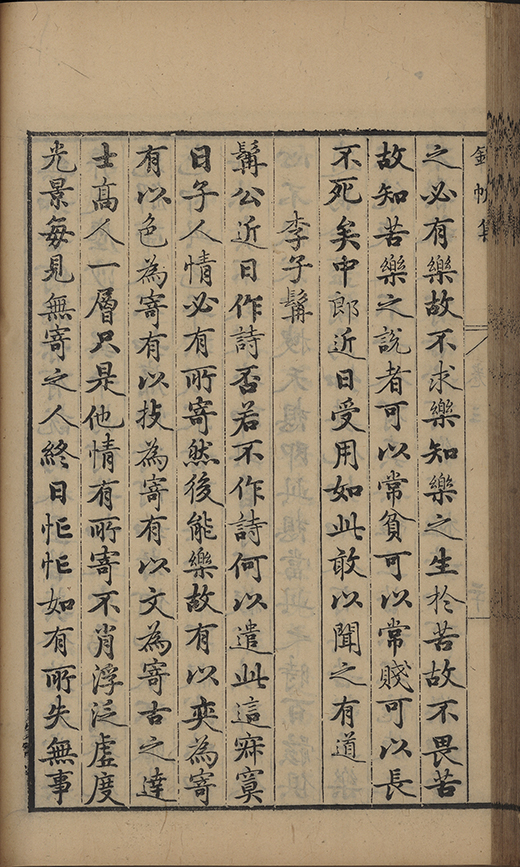 錦帆集
之必有樂故不求樂知樂之生於苦故不畏苦
故知苦樂之說者可以常貧可以常賤可以長
不死矣中郎近日受用如此敢以聞之有道
李子髯
髯公近日作詩否若不作詩何以遣此這寂寞
日子人情必有所寄然後能樂故有以奕為寄
有以色為寄有以技為寄有以文為寄古之達
士高人一層只是他情有所寄不肖浮泛虛度
光景每見無寄之人終日忙忙如有所失無事